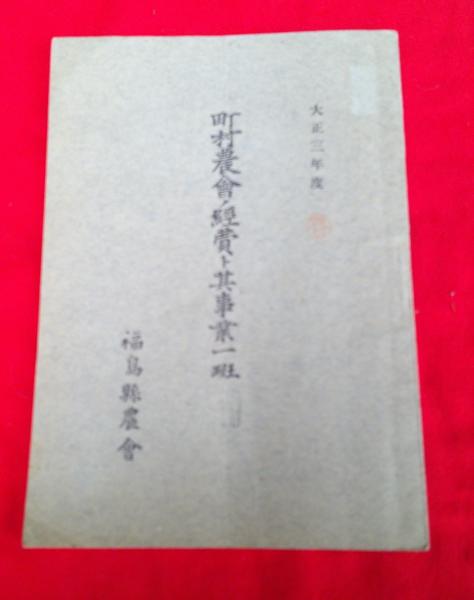 大正三年度
町村農會ノ經費ト其事業一班
福島縣農會